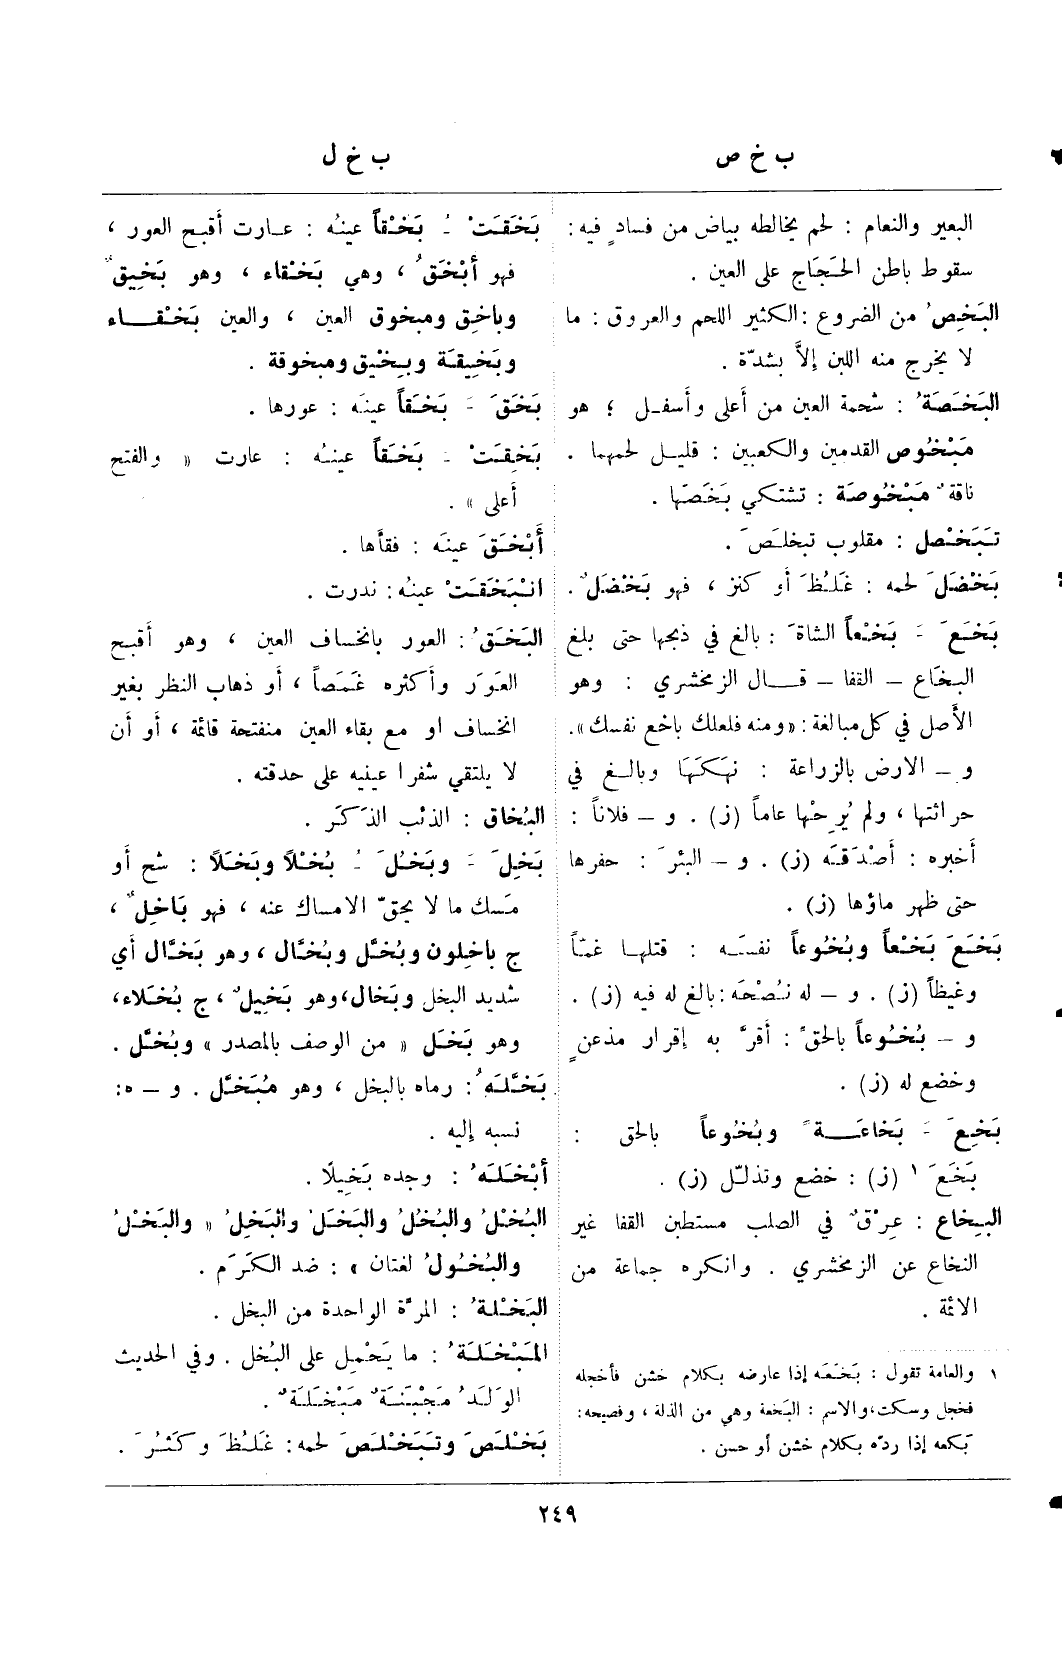 ب خ ص
ب خ ل
البعير والنعام : لحم يخالطه بياض من فسادٍ فيه :
سقوط باطن الحَجَاج على العين .
البَخِصُ من الضروع : الكثير اللحم والعروق : ما
لا يخرج منه اللبن إلاَّ بشدّة .
البَخَصَةُ : شحمة العين من أعلى وأسفل ؛ هو
مَبْخُوص القدمين والكعبين : قليل لحمهما .
ناقةٌ مَبْخُوصَة : تشتكي بَخَصَها .
تَبَخْصَل : مقلوب تبخلصَ .
بَخْضَلَ لحمه : غَلُظَ أو كنز ، فهو بَخْضَلٌ .
بَخَعَ َ بَخْعاً الشاةَ : بالغ في ذبحها حتى بلغ
البخَاع – القفا – قال الزمخشري : وهو
الأصل في كل مبالغة : «ومنه فلعلك باخع نفسك».
و – الارض بالزراعة : نهَكَهَا وبالغ في
حراثتها ، ولم يُرِحْها عاماً (ز) . و – فلاناً :
أخبره : أصْدَقَه (ز) . و – البئرَ : حفرها
حتى ظهر ماؤها (ز) .
بَخَعَ بَخْعاً وبُخُوعاً نفسَه : قتلها غمّاً
وغيظاً (ز) . و – له نُصْحَه : بالغ له فيه (ز) .
و – بُخُوعاً بالحقّ : أقرَّ به إقرار مذعنٍ
وخضع له (ز) .
بَخِعَ َ بَخاعَةً وبُخُوعاً بالحق :
بَخَعَ ١ (ز) : خضع وتذلّل (ز) .
البِخاع : عِرْقٌ في الصلب مستبطن القفا غير
النخاع عن الزمخشري . وانكره جماعة من
الائمة .
١ والعامة تقول : بَخَعَه إذا عارضه بكلام خشن فأخجله
فخجل وسكت، والاسم : البَخعة وهي من الذلة ، وفصيحه :
بَكعه إذا ردّه بكلام خشن أو حسن .
بَخَقَتْ ُ بَخْقاً عينُه : عارت أقبح العور ،
فهو أَبْخَقُ ، وهي بَخْقاء ، وهو بَخِيقٌ
وباخِق ومبخوق العين ، والعين بَخْقاء
وبَخِيقَة وبِخْيق ومبخوقة .
بَخَقَ َ بَخَقاً عينَه : عورها .
بَخِقَتْ َ بَخَقاً عينُه : عارت « والفتح
أعلى » .
أَبْخَقَ عينَه : فقأها .
انْبَخَقَتْ عينُه : ندرت .
البَخَقُ : العور بانخساف العين ، وهو أقبح
العَوَر وأكثره غَمَصاً ، أو ذهاب النظر بغير
انخساف او مع بقاء العين منفتحة قائمة ، أو أن
لا يلتقي شفرا عينيه على حدقته .
البُخاق : الذئب الذَكَر .
بَخِلَ َ وبَخُلَ ُ بُخْلاً وبَخَلاً : شح أو
مَسك ما لا يحقّ الامساك عنه ، فهو بَاخِلٌ ،
ج باخِلون وبُخَّل وبُخَّال ، وهو بَخَّال أي
شديد البخل وبَخال، وهو بَخِيلٌ ، ج بُخَلاء،
وهو بَخَل « من الوصف بالمصدر » وبُخَّل .
بَخَّلَهُ : رماه بالبخل ، وهو مُبَخَّل . و – ه :
نسبه إليه .
أَبْخَلَهُ : وجده بَخِيلًا .
البُخْلُ والبُخُلُ والبَخَلُ والبَخِلُ « والبَخْلُ
والبُخُولُ لغتان » : ضد الكَرَم .
البَخْلةُ : المرّة الواحدة من البخل .
المَبْخَلَةُ : ما يَحْمِل على البُخل . وفي الحديث
الوَلَدُ مَجْبَنَةٌ مَبْخَلَةٌ .
بَخْلَصَ وتَبَخْلَصَ لحمه : غَلُظَ وكَثُرَ .
٢٤٩